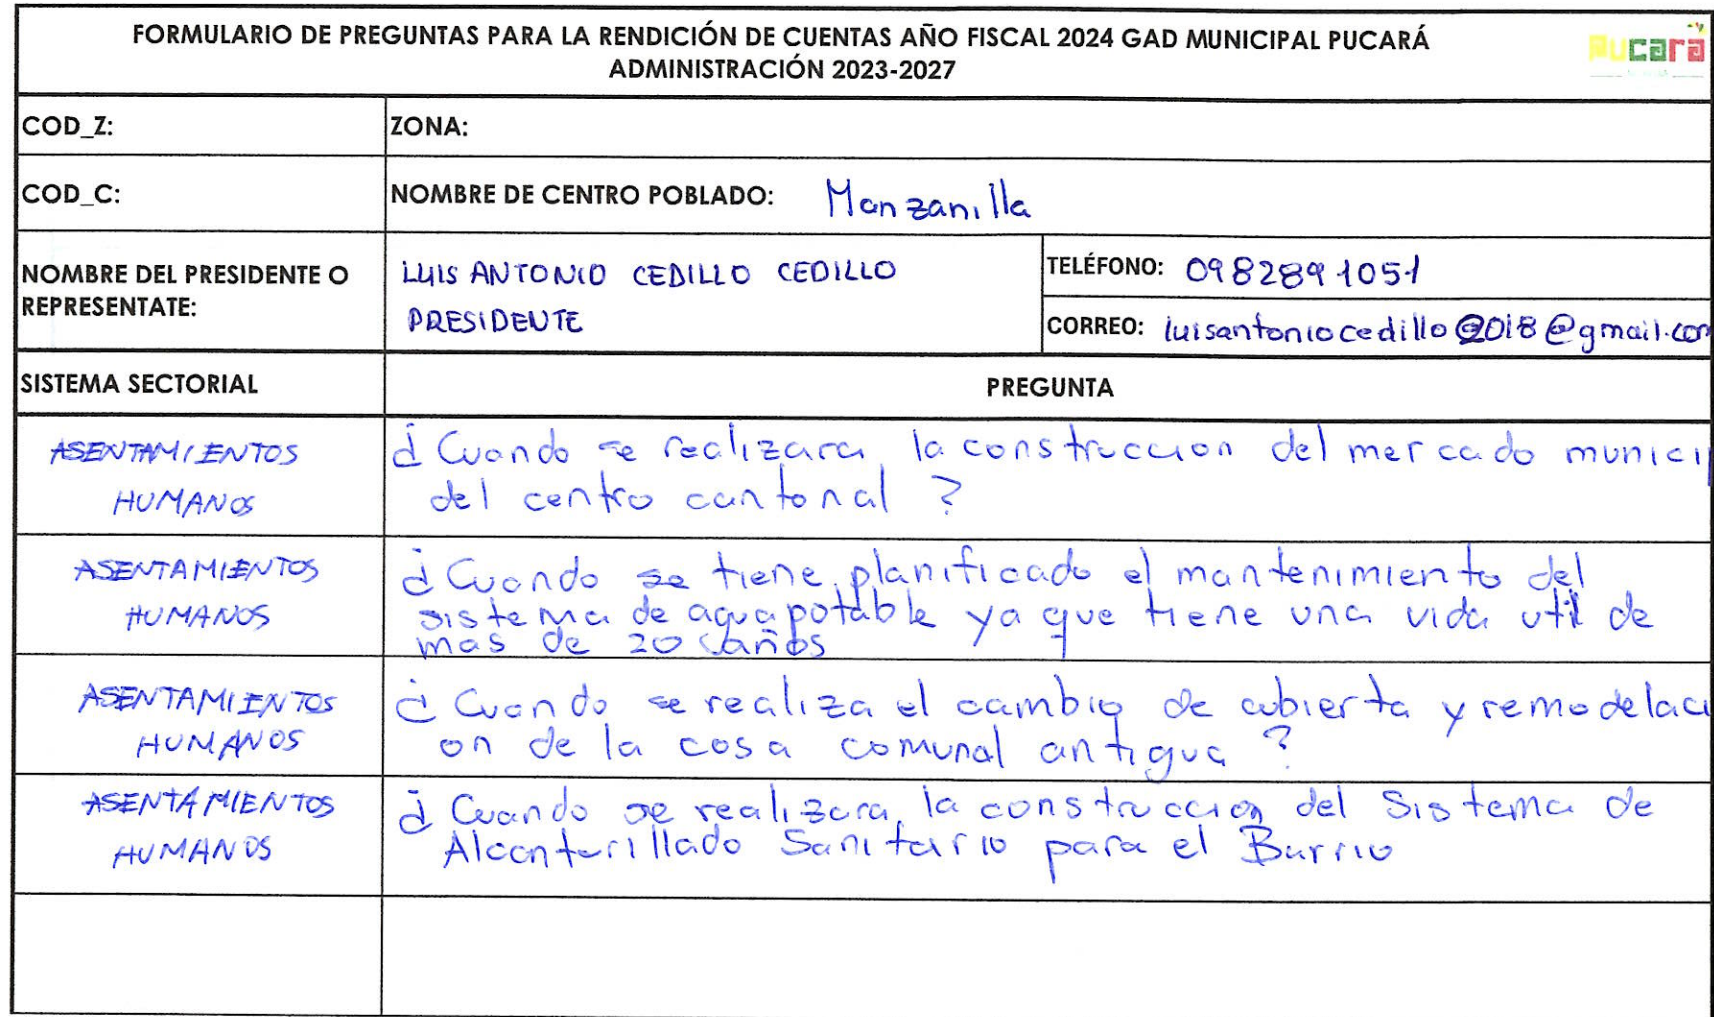 FORMULARIO DE PREGUNTAS PARA LA RENDICIÓN DE CUENTAS AÑO FISCAL 2024 GAD MUNICIPAL PUCARÁ
ADMINISTRACIÓN 2023-2027
Pucará
COD_Z:
ZONA:
COD_C:
NOMBRE DE CENTRO POBLADO: Manzanilla
NOMBRE DEL PRESIDENTE O
REPRESENTATE:
LUIS ANTONIO CEDILLO CEDILLO
PRESIDENTE
TELÉFONO: 0982891051
CORREO: luisantoniocedillo2018@gmail.com
SISTEMA SECTORIAL
PREGUNTA
ASENTAMIENTOS
HUMANOS
¿Cuando se realizara la construccion del mercado munici
del centro cantonal ?
ASENTAMIENTOS
HUMANOS
¿Cuando se tiene planificado el mantenimiento del
sistema de agua potable ya que tiene una vida util de
mas de 20 años
ASENTAMIENTOS
HUMANOS
¿Cuando se realiza el cambio de cubierta y remodelaci
on de la casa comunal antigua ?
ASENTAMIENTOS
HUMANOS
¿Cuando se realizara la construccion del Sistema de
Alcantarillado Sanitario para el Barrio